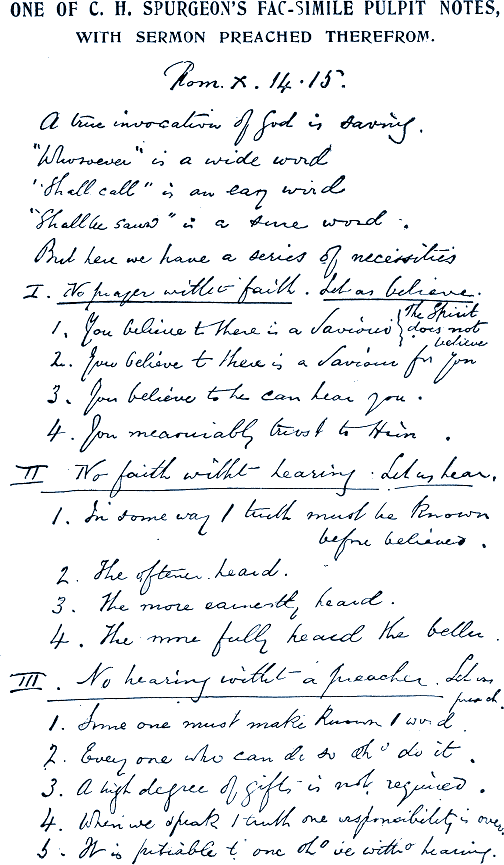 ONE OF C. H. SPURGEON'S FAC-SIMILE PULPIT NOTES,
WITH SERMON PREACHED THEREFROM.
Rom. X. 14.15.
A true invocation of God is saving.
"Whosoever" is a wide word
"Shall call" is an easy word
"Shall be saved" is a sure word.
But here we have a series of necessities
I. No prayer witht faith. Let us believe.
1. You believe tt there is a Saviour {The Spirit
does not
believe
2. You believe tt there is a Saviour for you
3. You believe tt he can hear you.
4. You measurably trust to Him.
II No faith witht hearing. Let us hear.
1. In some way / truth must be known
before believed.
2. The oftener heard.
3. The more earnestly heard.
4. The more fully heard the better.
III. No hearing witht a preacher. Let us
preach.
1. Some one must make known / word
2. Every one who can do so shd do it.
3. A high degree of gifts is not required.
4. When we speak / truth one responsibility is over
5. It is pitiable tt one shd with hearing